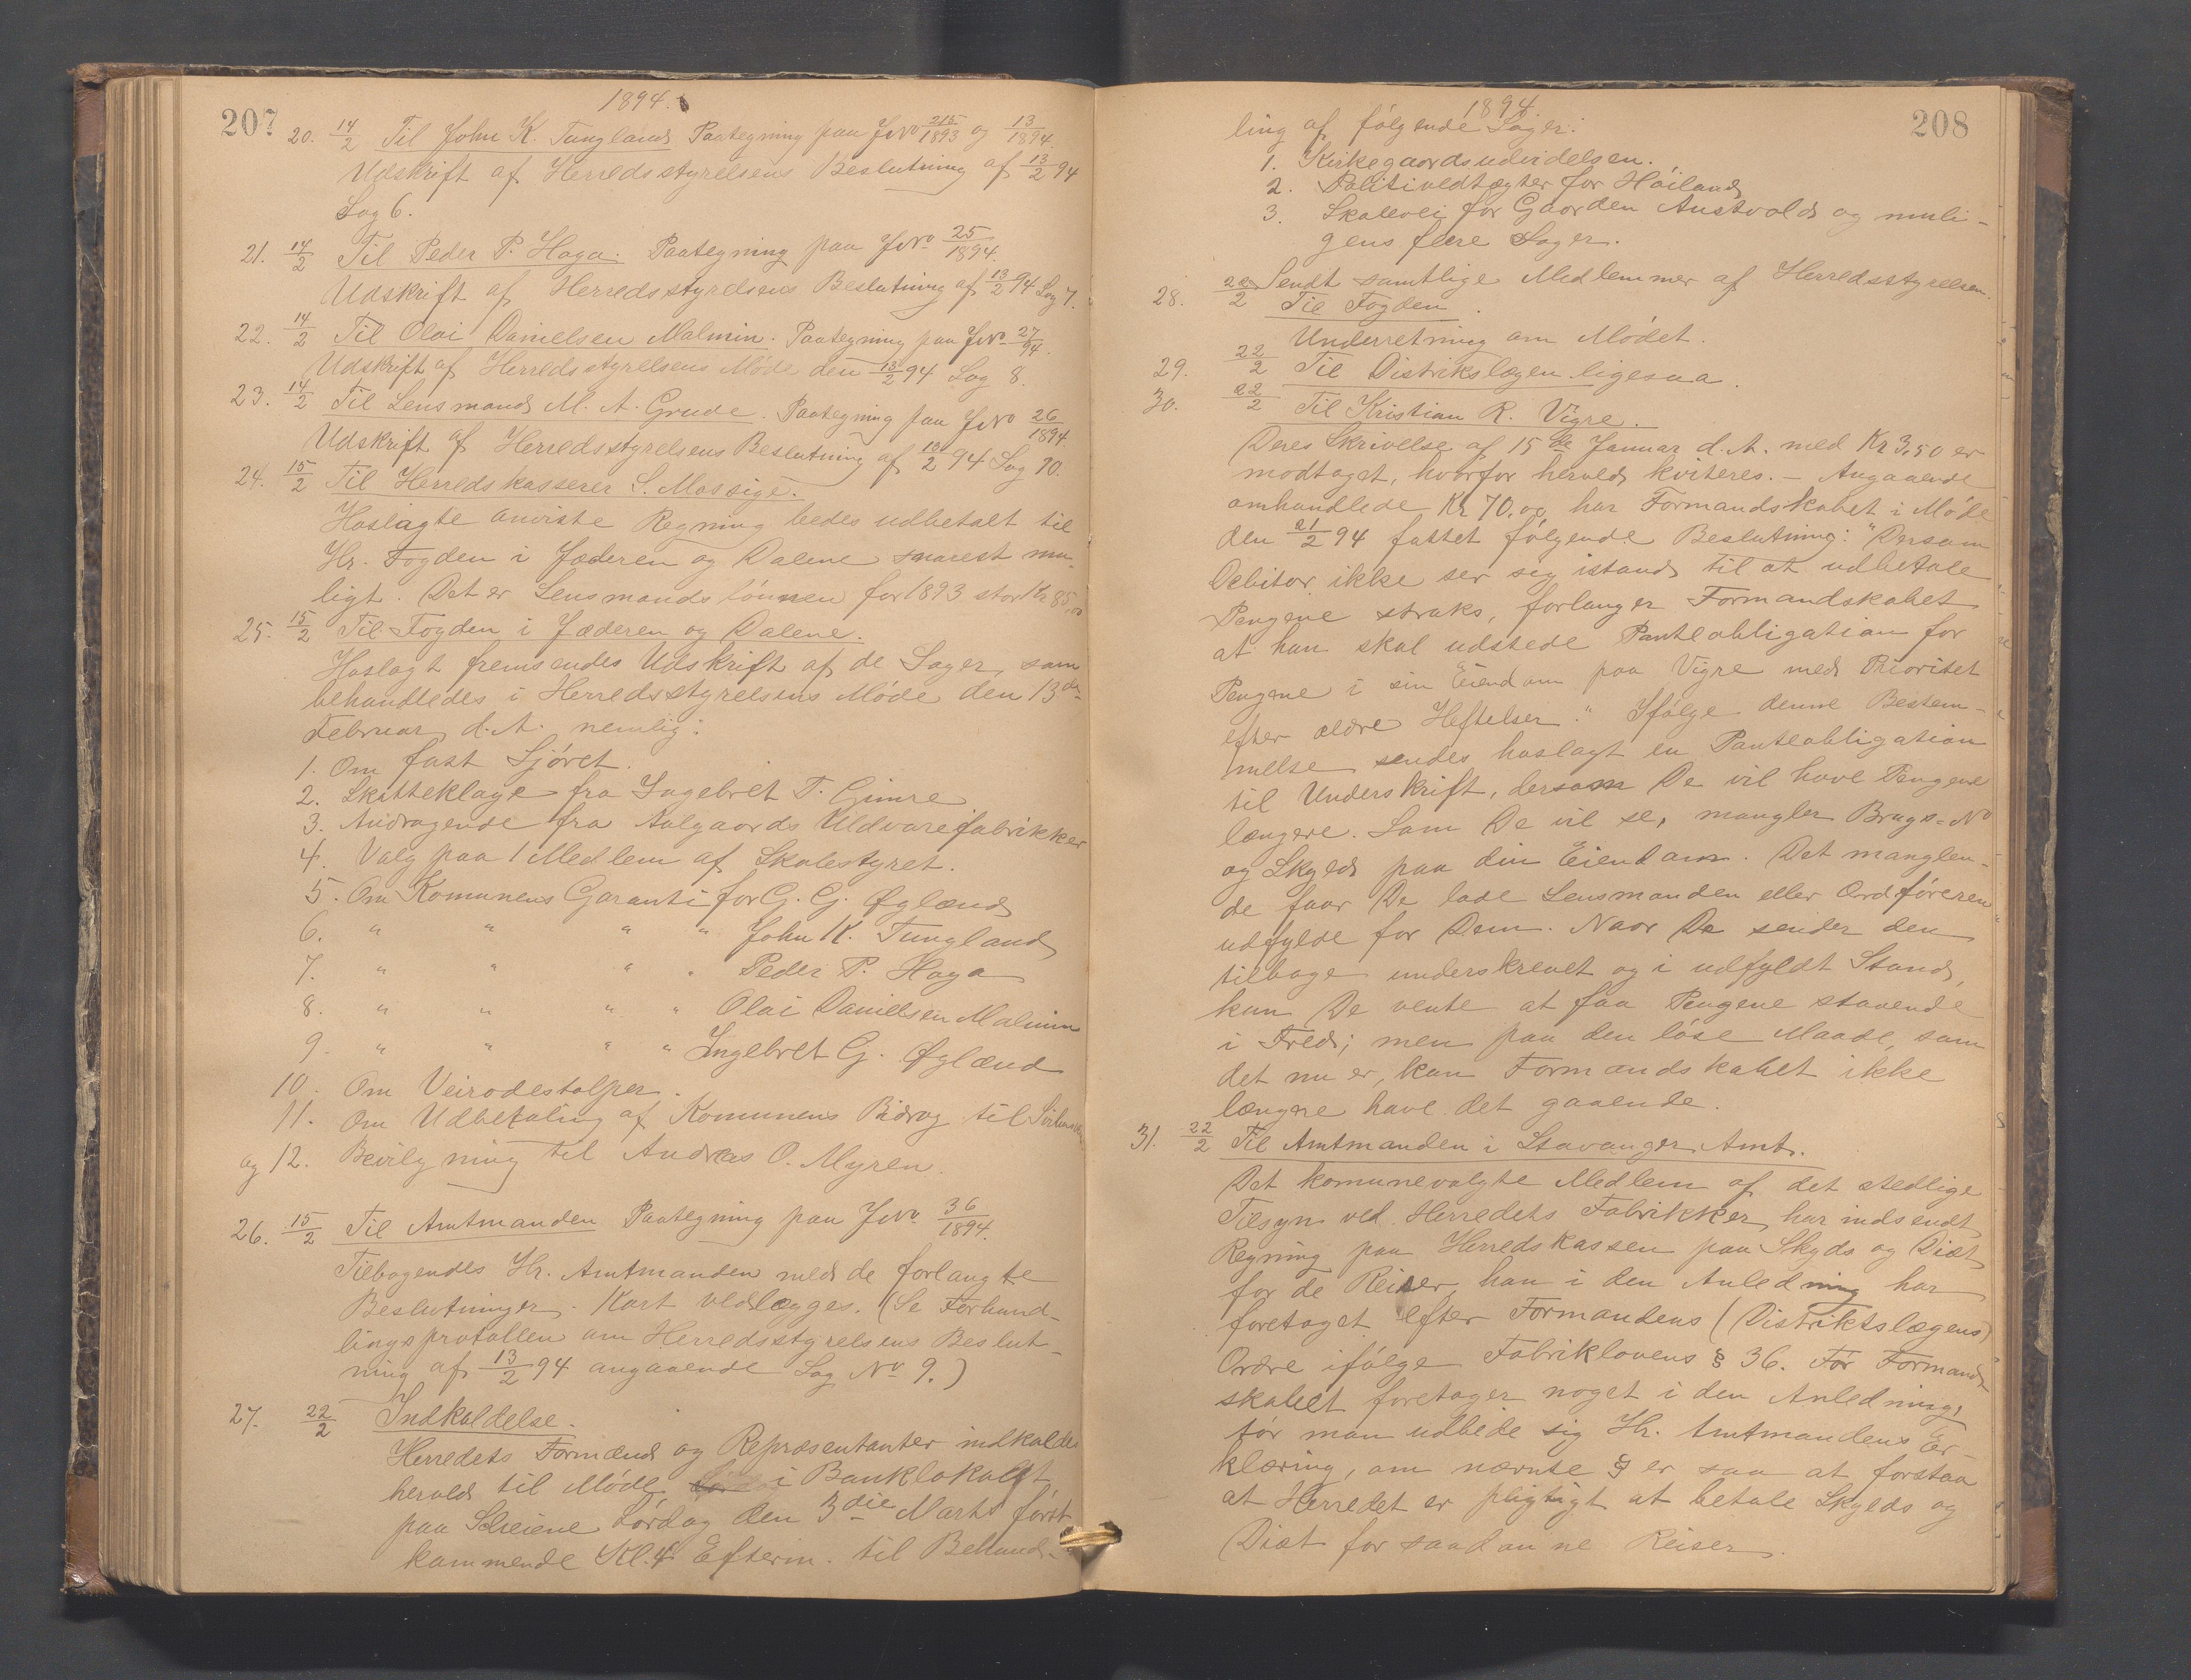 207
1894.
20. 14/2 Til John K. Tungland Paategning paa JNo 215/1893 og 13/1894.
Udskrift af Herredsstyrelsens Beslutning af 13/2 94
Sag 6.
21. 14/2 Til Peder P. Haga. Paategning paa JNo 25/1894.
Udskrift af Herredsstyrelsens Beslutning af 13/2 94 Sag 7.
22. 14/2 Til Olai Danielsen Malmin. Paategning paa JNo 27/94.
Udskrift af Herredsstyrelsens Møde den 13/2 94 Sag 8.
23. 14/2 Til Lensmand M. A. Grude. Paategning paa JNo 26/1894
Udskrift af Herredsstyrelsens Beslutning af 13/2 94 Sag 10.
24. 15/2 Til Herredskasserer S. Mossige.
Hoslagte anviste Regning bedes udbetalt til
Hr. Fogden i Jæderen og Dalene snarest mu-
ligt. Det er Lensmandslønnen for 1893 stor Kr 85,00
25. 15/2 Til Fogden i Jæderen og Dalene.
Hoslagt fremsendes Udskrift af de Sager, som
behandledes i Herredsstyrelsens Møde den 13de
Februar d. A. nemlig:
1. Om fast Sjøret.
2. Skatteklage fra Ingebret T. Gimre
3. Andragende fra Aalgaards Uldvarefabrikker
4. Valg paa 1 Medlem af Skolestyret.
5. Om Komunens Garanti for G. G. Øglænd
6. " " " " John K. Tungland
7. " " " " Peder P. Haga
8. " " " " Olai Danielsen Malmin
9. " " " " Ingebret G. Øglænd
10. Om Veirodestolper.
11. Om Udbetaling af Komunens Bidrag til
og 12. Bevilgning til Andreas O. Myren.
26. 15/2 Til Amtmanden Paategning paa JNo. 36/1894.
Tilbagendes Hr. Amtmanden med de forlangte
Beslutninger. Kart vedlægges. (Se Forhand-
lingsprotollen om Herredsstyrelsens Beslut-
ning af 13/2 94 angaaende Sag No 9.)
27. 22/2 Indkaldelse.
Herredets Formænd og Repræsentanter indkaldes
herved til Møde i Banklokalet
paa Skeiene Lørdag den 3die Marts først
kommende Kl. 4 Efterm. til Behand-
208
1894
ling af følgende Sager:
1. Kirkegaardsudvidelsen.
2. Politivedtægter for Høiland
3. Skolevei for Gaarden Austvold og muli-
gens flere Sager.
Sendt samtlige Medlemmer af Herredsstyrelsen.
28. 22/2 Til Fogden.
Underretning om Mødet.
29. 22/2 Til Distrikslægen ligesaa.
30. 22/2 Til Kristian R. Vigre.
Deres Skrivelse af 15de Januar d. A. med Kr 3,50 er
modtaget, hvorfor herved kviteres. - Angaaende
omhandlede Kr 70,00 har Formandskabet i Møde
den 21/2 94 fattet følgende Beslutning: "Dersom
Debitor ikke ser sig istand til at udbetale
Pengene straks, forlanger Formandskabet
at han skal udstede Panteobligation for
Pengene i sin Eiendom paa Vigre med Prioritet
efter ældre Heftelser." Ifølge denne Bestem-
melse sendes hoslagt en Panteobligation
til Underskrift, dersom De vil have Pengene
længere. Som De vil se, mangler Brugs-No
og Skyld paa din Eiendom. Det manglen-
de faar De lade Lensmanden eller Ordføreren
udfylde for Dem. Naar De sender den
tilbage underskrevet og i udfyldt Stand,
kan De vente at faa Pengene staaende
i Fred; men paa den løse Maade, som
det nu er, kan Formandskabet ikke
længre have det gaaende.
31. 22/2 Til Amtmanden i Stavanger Amt.
Det komunevalgte Medlem af det stedlige
Tilsyn ved Herredets Fabrikker har indsendt
Regning paa Herredskassen paa Skyds og Diæt
for de Reiser, han i den Anledning har
foretaget efter Formandens (Distriktslægens)
Ordre ifølge Fabriklovens § 36. Før Formand-
skabet foretager noget i den Anledning,
tør man udbede sig Hr. Amtmandens Er-
klæring, om nævnte § er saa at forstaa
at Herredet er pligtigt at betale Skyds og
Diæt for saadanne Reiser.